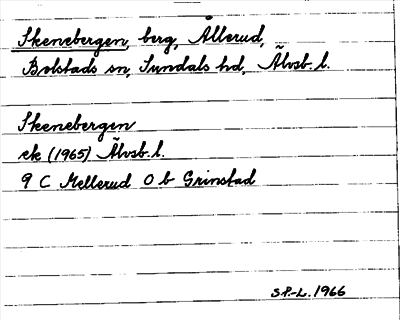 Skenebergen, berg, Ållerud,
Bolstads sn, Sundals hd, Älvsb. l.
Skenebergen
ek (1965) Älvsb. l.
9 C Mellerud O b Grinstad
SP.-L. 1966